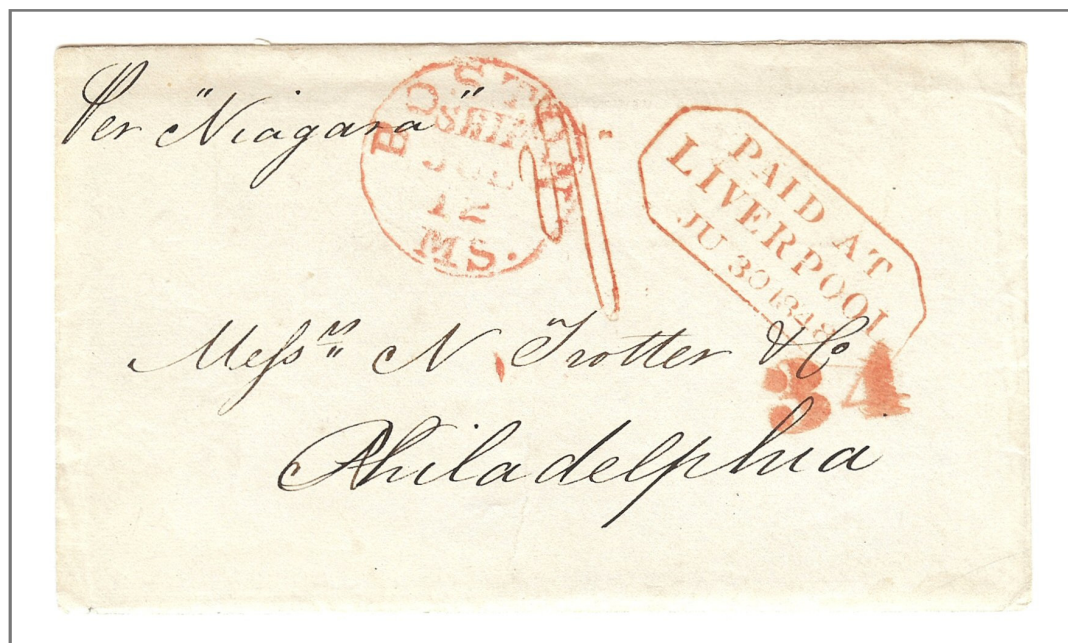 Per "Niagara"
BOSTON
SHIP
JUL
12
MS.
PAID AT
LIVERPOOL
JU 30 1848
Messrs N Trotter & Co
34
Philadelphia